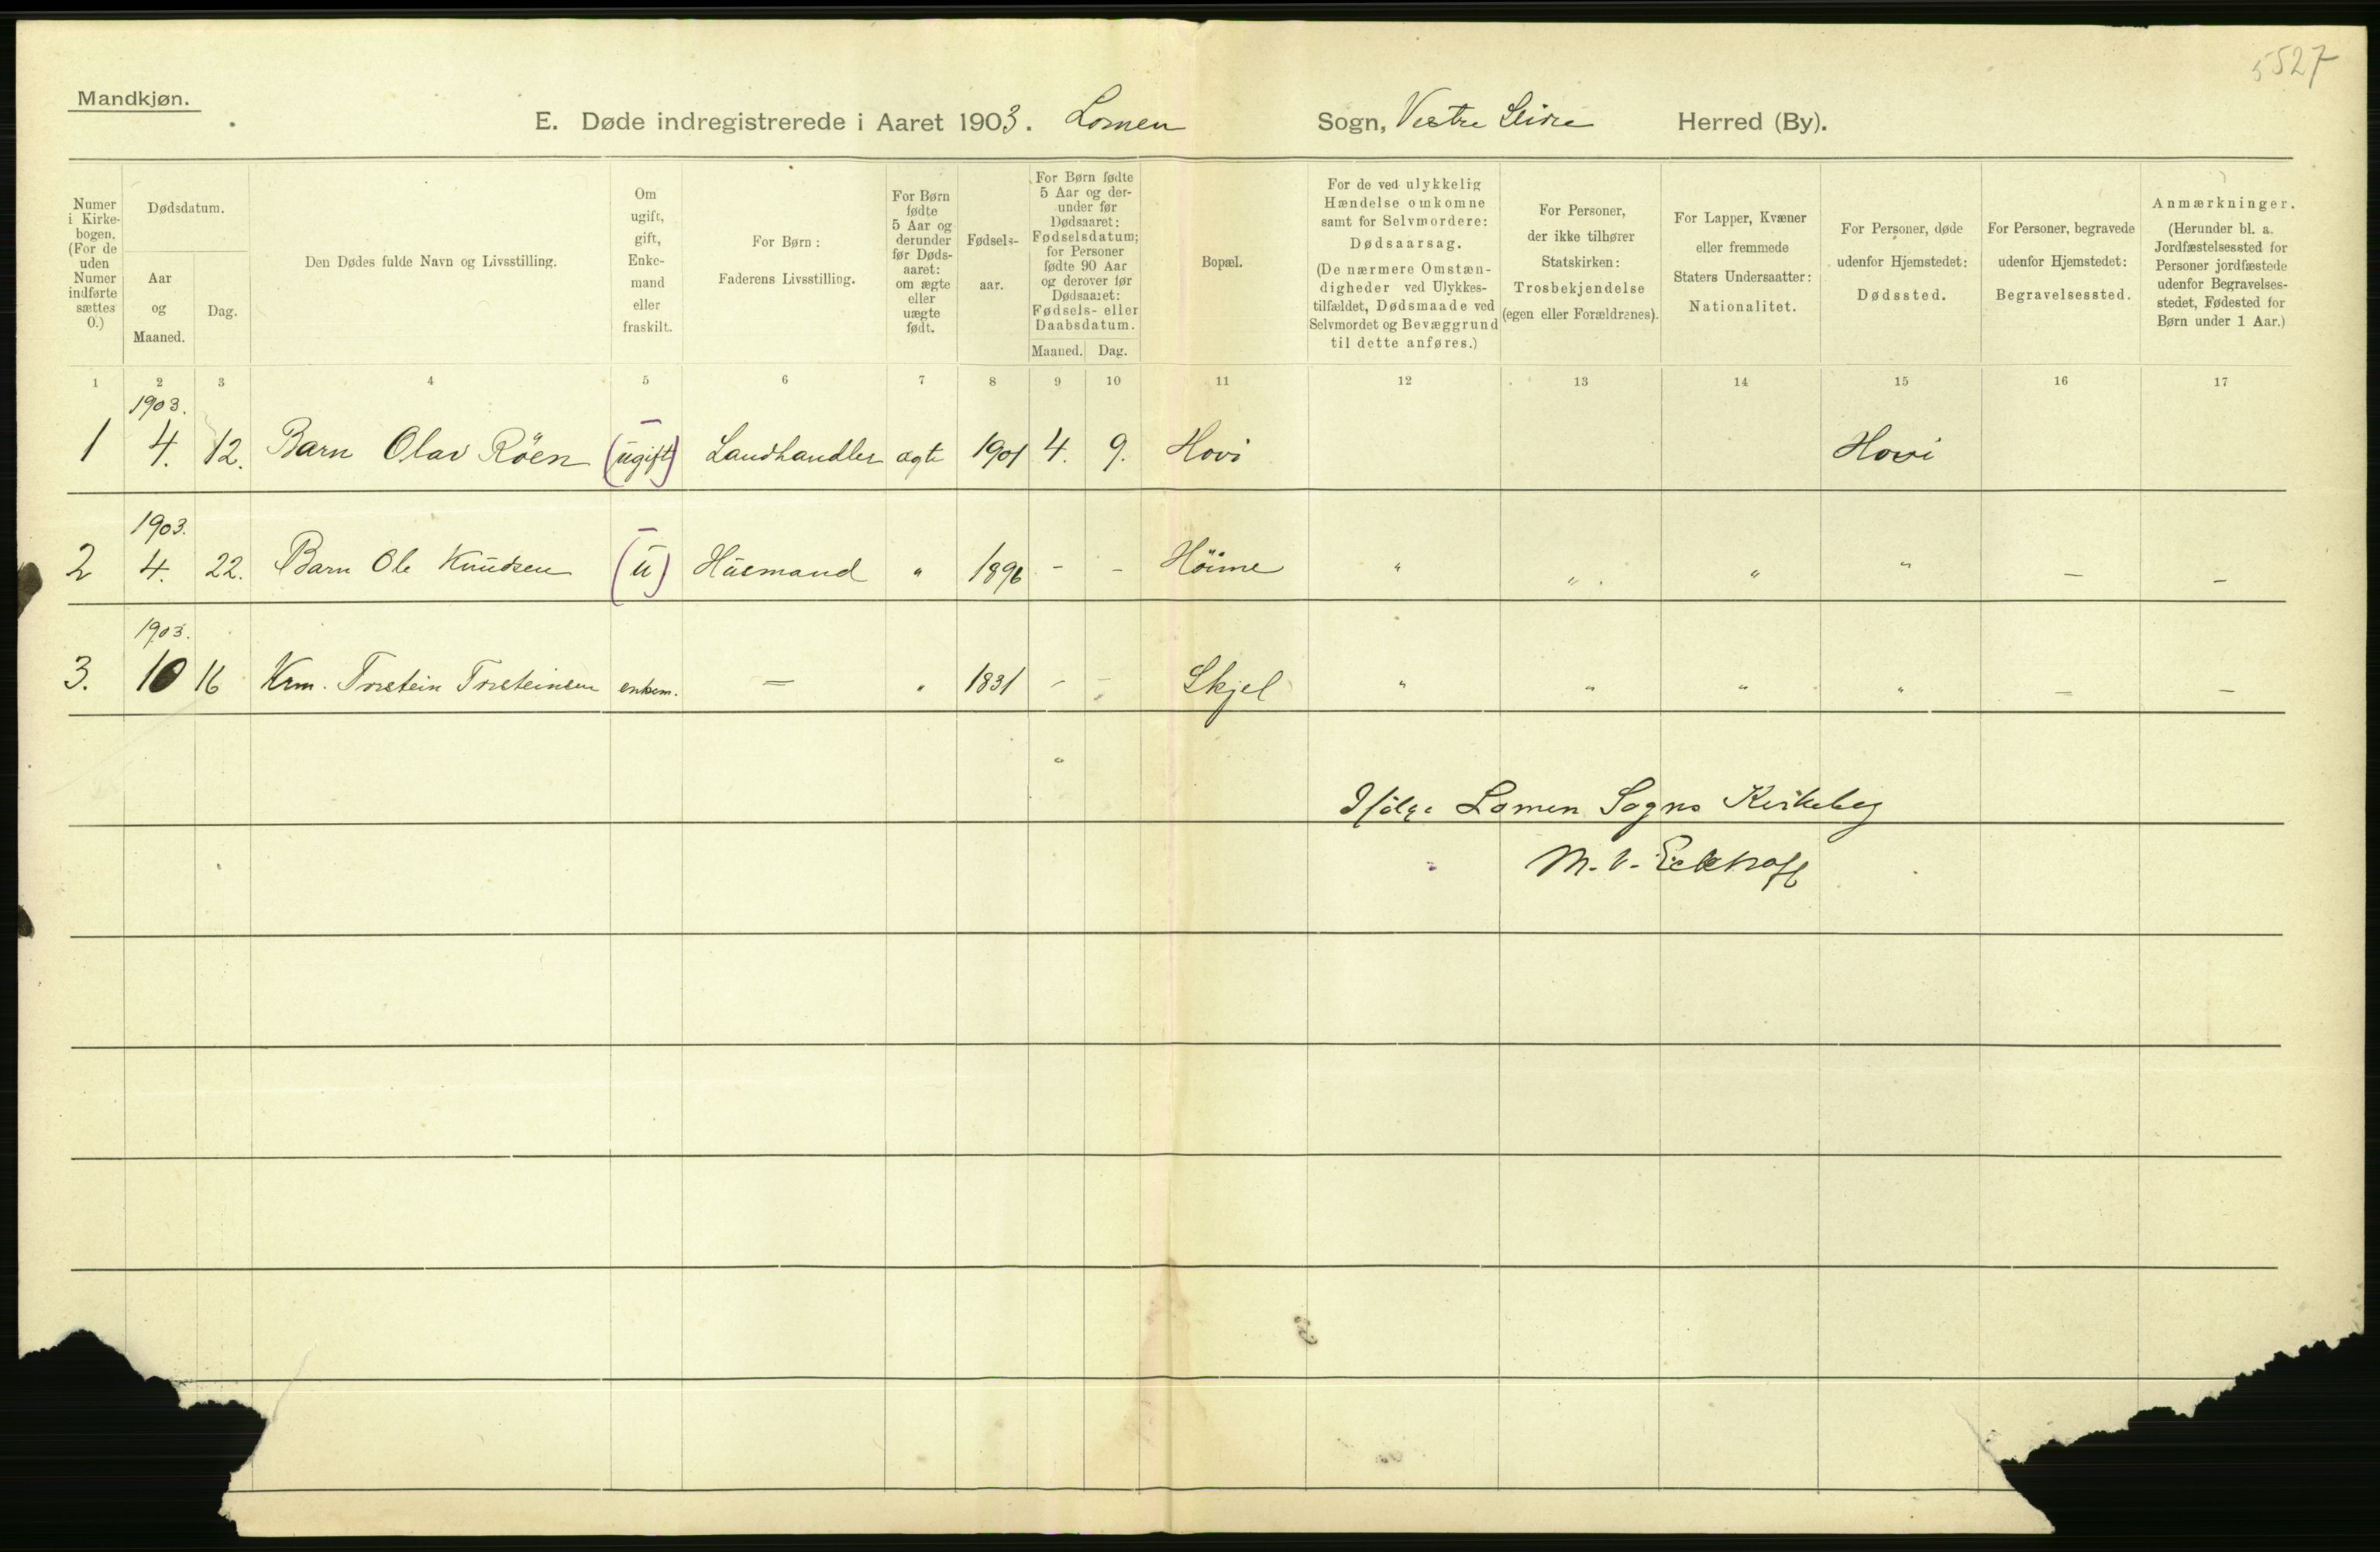 5527
Mandkjøn.
E. Døde indregistrerede i Aaret 1903. Lomen Sogn, Vestre Slidre Herred (By).
Numer i Kirkebogen. (For de uden Numer indførte sættes 0.)
Dødsdatum.
Aar og Maaned.
Dag.
Den Dødes fulde Navn og Livsstilling.
Om ugift, gift, Enkemand eller fraskilt.
For Børn: Faderens Livsstilling.
For Børn fødte 5 Aar og derunder før Dødsaaret: om ægte eller uægte født.
Fødselsaar.
For Børn fødte 5 Aar og derunder før Dødsaaret: Fødselsdatum; for Personer fødte 90 Aar og derover før Dødsaaret: Fødsels- eller Daabsdatum.
Maaned. Dag.
Bopæl.
For de ved ulykkelig Hændelse omkomne samt for Selvmordere: Dødsaarsag. (De nærmere Omstændigheder ved Ulykkestilfældet, Dødsmaade ved Selvmordet og Bevæggrund til dette anføres.)
For Personer, der ikke tilhører Statskirken: Trosbekjendelse (egen eller Forældrenes).
For Lapper, Kvæner eller fremmede Staters Undersaatter: Nationalitet.
For Personer, døde udenfor Hjemstedet: Dødssted.
For Personer, begravede udenfor Hjemstedet: Begravelsessted.
Anmærkninger. (Herunder bl. a. Jordfæstelsessted for Personer jordfæstede udenfor Begravelsesstedet, Fødested for Børn under 1 Aar.)
1 2 3 4 5 6 7 8 9 10 11 12 13 14 15 16 17
1903.
1 4. 12. Barn Olav Röen (ugift) Landhandler ægte 1901 4. 9. Hovi Hovi
1903.
2 4. 22. Barn Ole Knudsen (u) Husmand " 1896 - - Höime " " " " - -
1903.
3. 10 16 Krm. Torstein Torsteinsen enkem. = " 1831 - - Skjel " " " " - -
Ifölge Lomen Sogns Kirkebog
M. V. Eckhoff